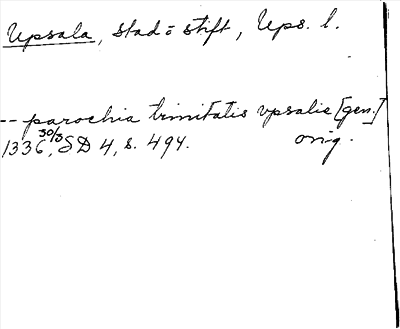 Upsala, stad o stift, Ups. l.
-- parochia trinitatis vpsalie [gen.]
1336 30/3, SD 4, s. 494. orig.